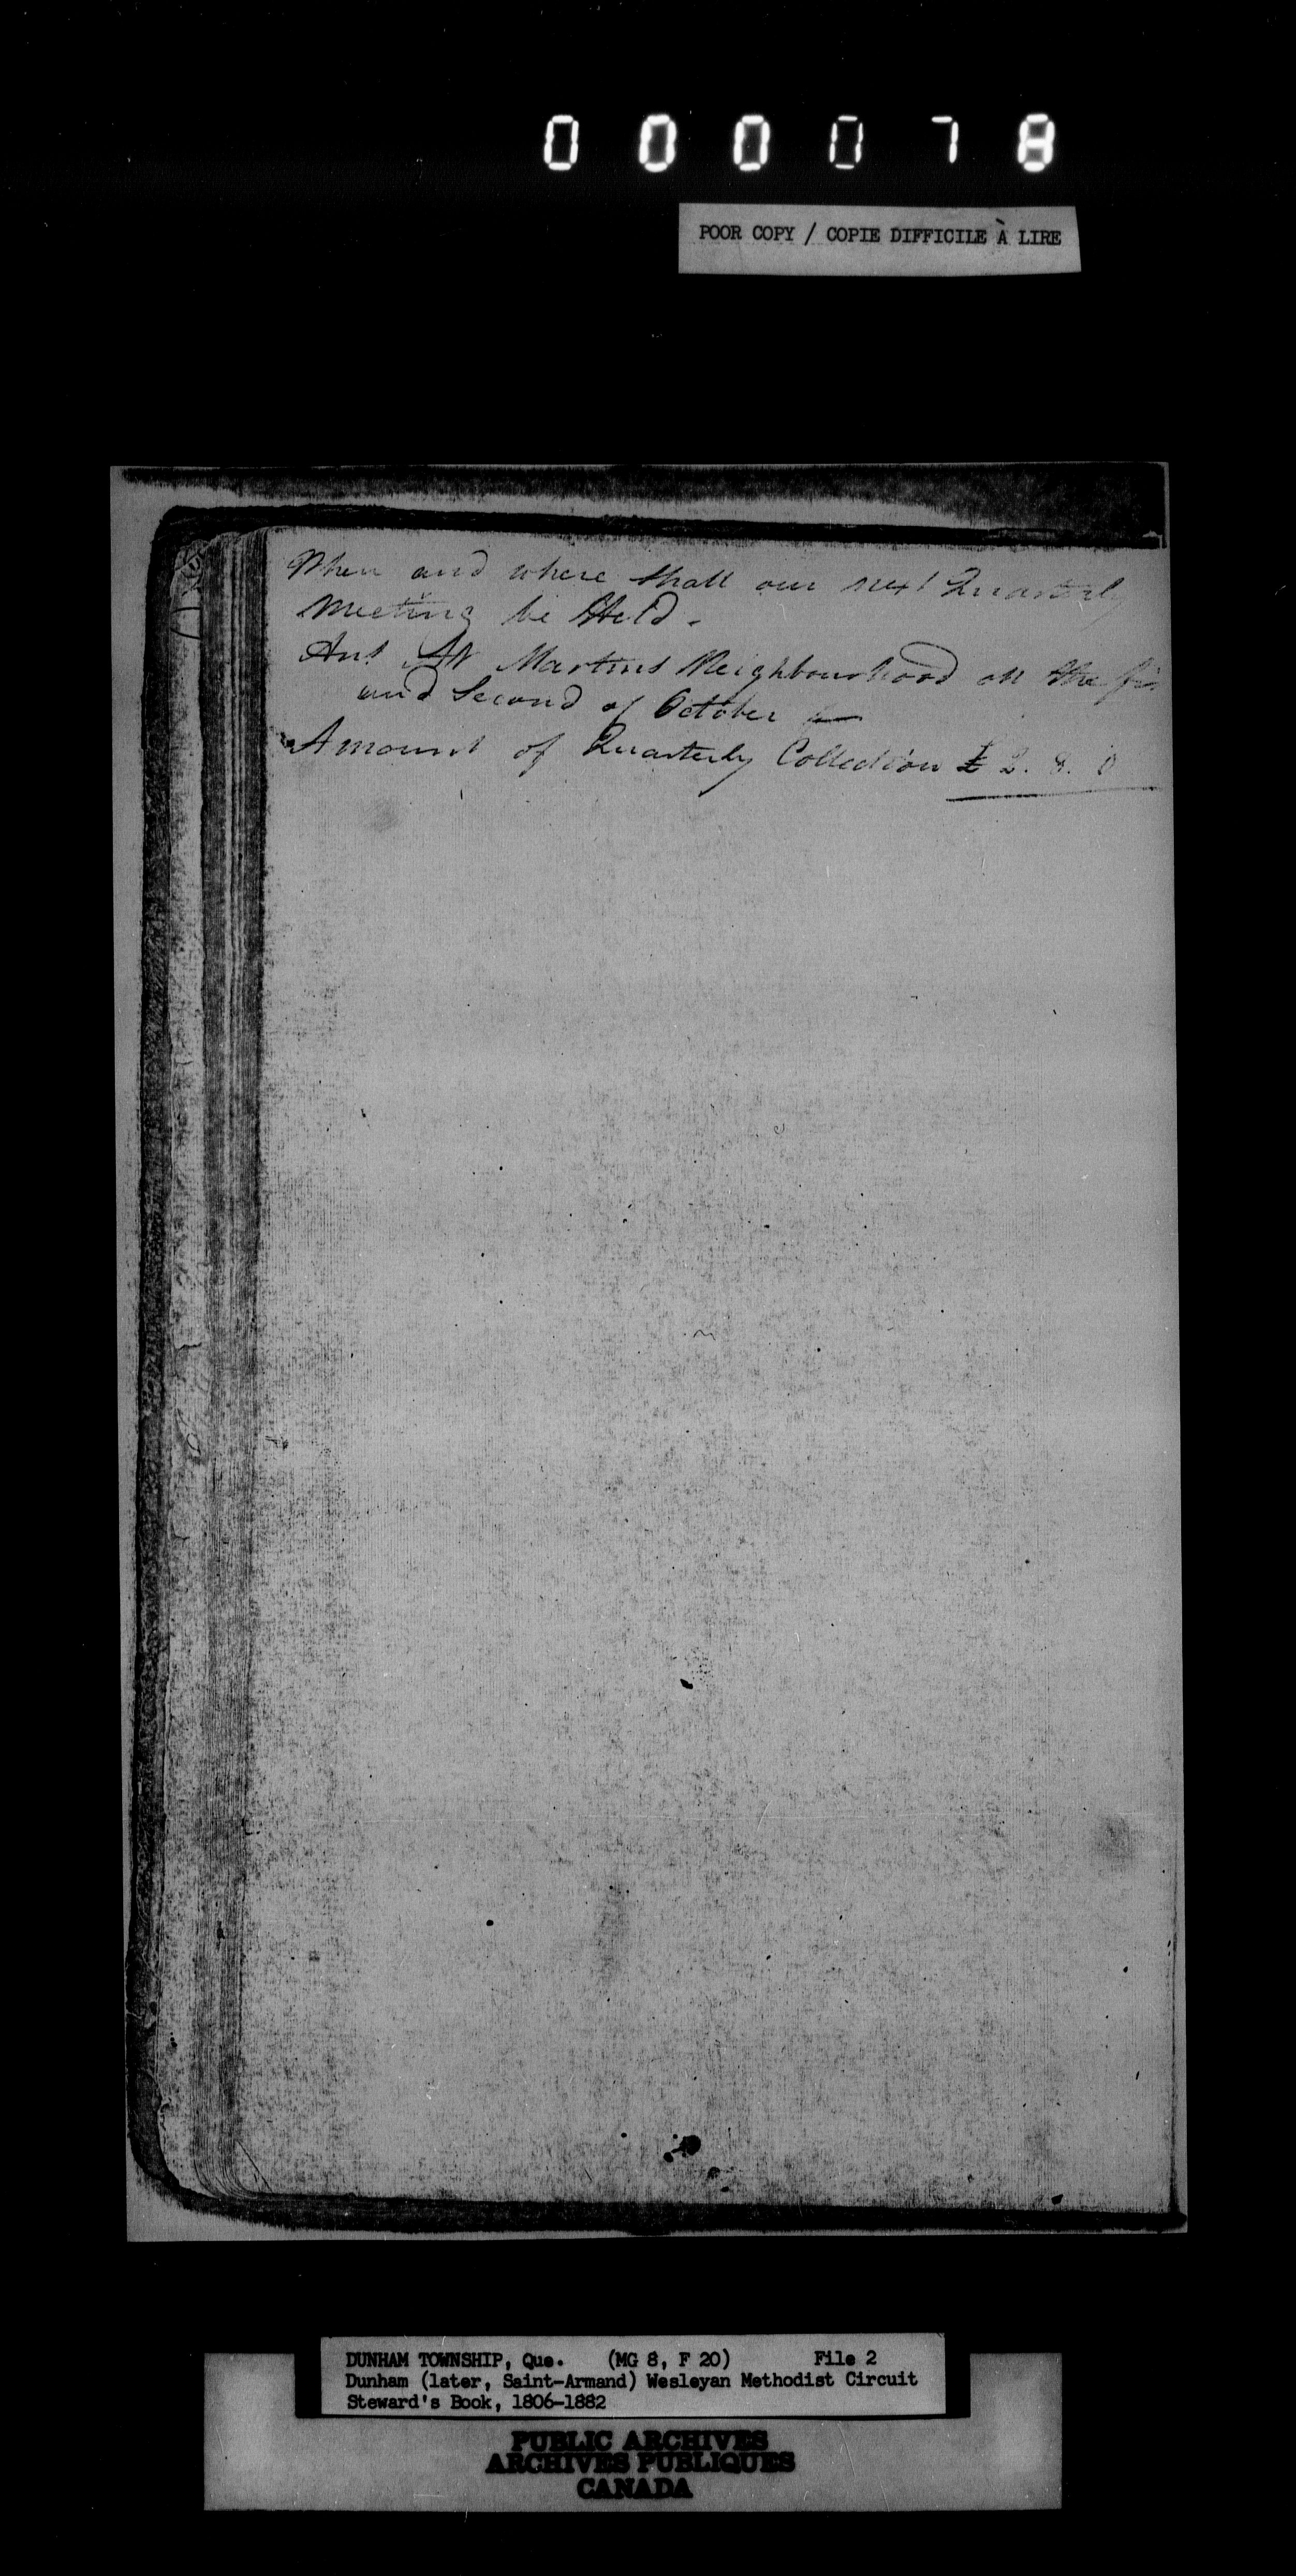 000078
POOR COPY / COPIE DIFFICILE À LIRE
When and where shall our next Quarterly
Meeting be Held.
Ans At Martins Neighbourhood on the
and Second of October
Amount of Quarterly Collection £ 2. 8. 0
DUNHAM TOWNSHIP, Que. (MG 8, F 20) File 2
Dunham (later, Saint-Armand) Wesleyan Methodist Circuit
Steward's Book, 1806-1882
PUBLIC ARCHIVES
ARCHIVES PUBLIQUES
CANADA